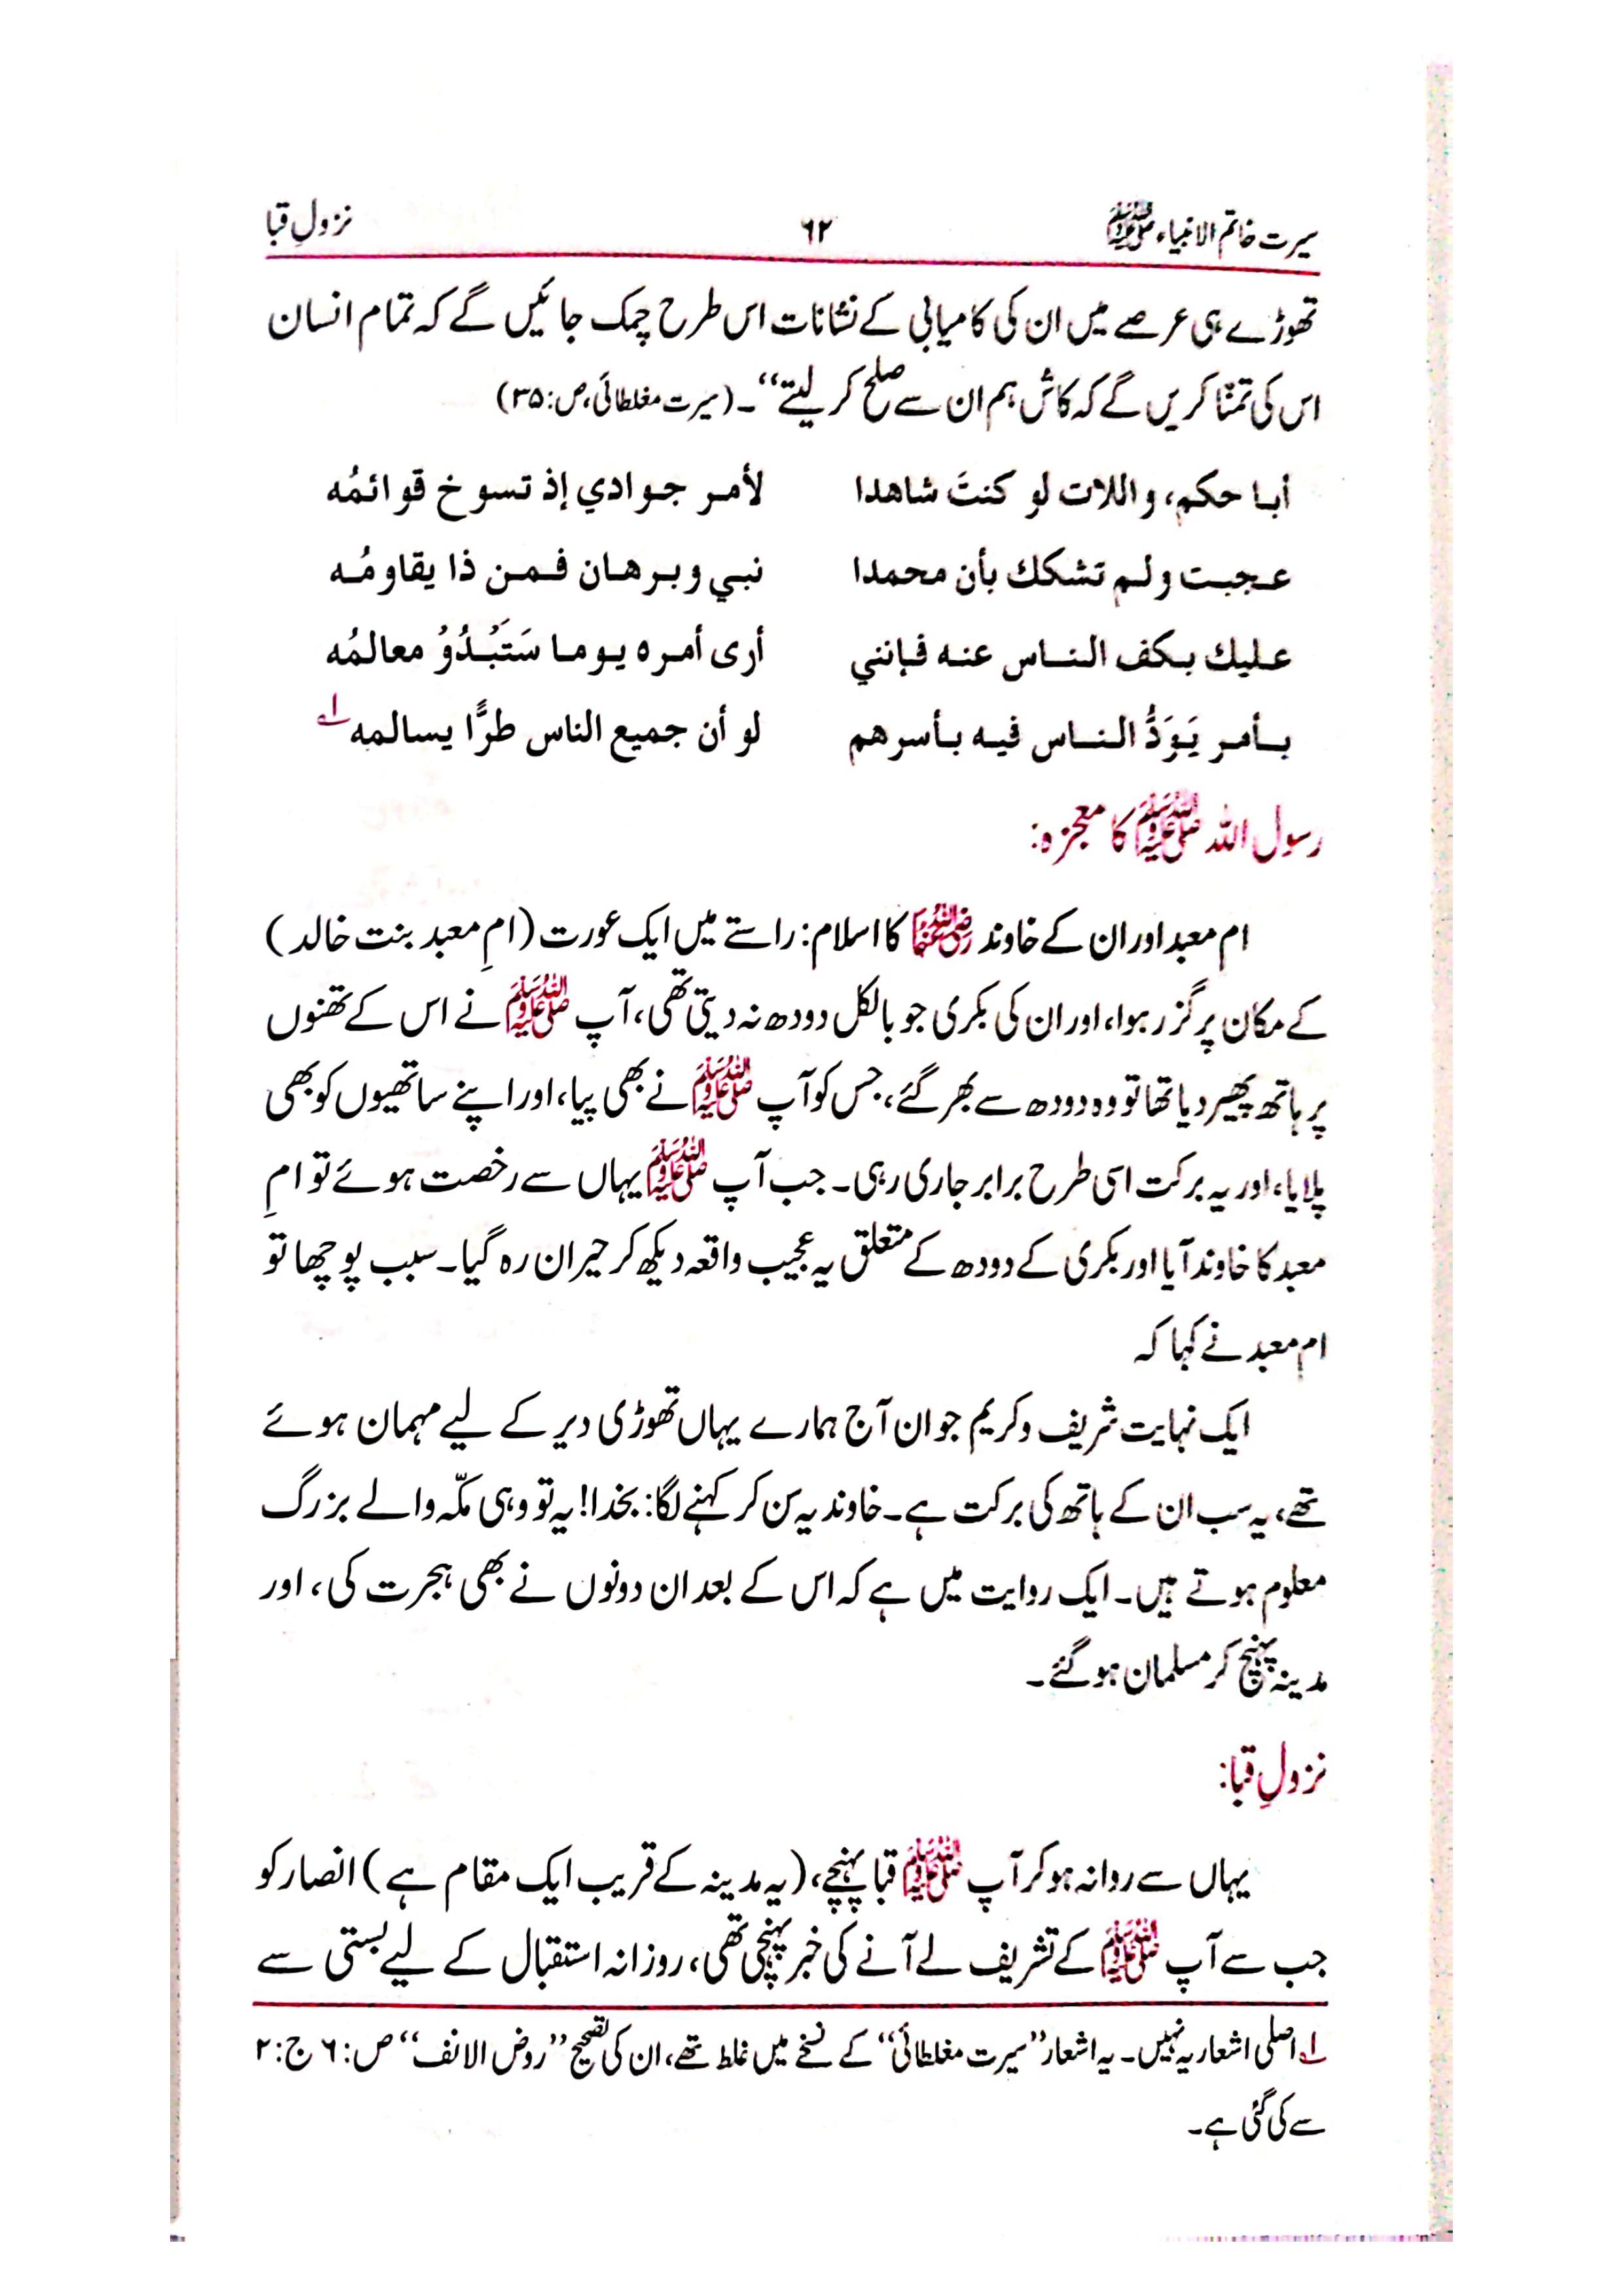 سیرت خاتم الانبیاء ﷺ ۶۲ نزولِ قبا
تھوڑے ہی عرصے میں ان کی کامیابی کے نشانات اس طرح چمک جائیں گے کہ تمام انسان
اس کی تمنّا کریں گے کہ کاش ہم ان سے صلح کر لیتے‘‘۔ (سیرت مغلطائی، ص:۳۵)
أبا حكم، واللات لو كنتَ شاهدا لأمر جوادي إذ تسوخ قوائمُه
عجبت ولم تشكك بأن محمدا نبي وبرهان فمن ذا يقاومُه
عليك بكف الناس عنه فإنني أرى أمره يوما سَتَبْدُوْ معالمُه
بأمر يَوَدُّ الناس فيه بأسرهم لو أن جميع الناس طرًّا يسالمه ؂۱
رسول اللہ ﷺ کا معجزہ:
ام معبد اور ان کے خاوند رضی اللہ عنہما کا اسلام: راستے میں ایک عورت (امِ معبد بنت خالد)
کے مکان پر گزر ہوا، اور ان کی بکری جو بالکل دودھ نہ دیتی تھی، آپ ﷺ نے اس کے تھنوں
پر ہاتھ پھیر دیا تھا تو وہ دودھ سے بھر گئے، جس کو آپ ﷺ نے بھی پیا، اور اپنے ساتھیوں کو بھی
پلایا، اور یہ برکت اسی طرح برابر جاری رہی۔ جب آپ ﷺ یہاں سے رخصت ہوئے تو امِ
معبد کا خاوند آیا اور بکری کے دودھ کے متعلق یہ عجیب واقعہ دیکھ کر حیران رہ گیا۔ سبب پوچھا تو
ام معبد نے کہا کہ
ایک نہایت شریف وکریم جوان آج ہمارے یہاں تھوڑی دیر کے لیے مہمان ہوئے
تھے، یہ سب ان کے ہاتھ کی برکت ہے۔ خاوند یہ سن کر کہنے لگا: بخدا! یہ تو وہی مکّہ والے بزرگ
معلوم ہوتے ہیں۔ ایک روایت میں ہے کہ اس کے بعد ان دونوں نے بھی ہجرت کی، اور
مدینہ پہنچ کر مسلمان ہو گئے۔
نزولِ قبا:
یہاں سے روانہ ہو کر آپ ﷺ قبا پہنچے، (یہ مدینہ کے قریب ایک مقام ہے) انصار کو
جب سے آپ ﷺ کے تشریف لے آنے کی خبر پہنچی تھی، روزانہ استقبال کے لیے بستی سے
؂۱ اصلی اشعار یہ نہیں۔ یہ اشعار ’’سیرت مغلطائی‘‘ کے نسخے میں غلط تھے، ان کی تصحیح ’’روض الانف‘‘ ص: ۶ ج: ۲
سے کی گئی ہے۔